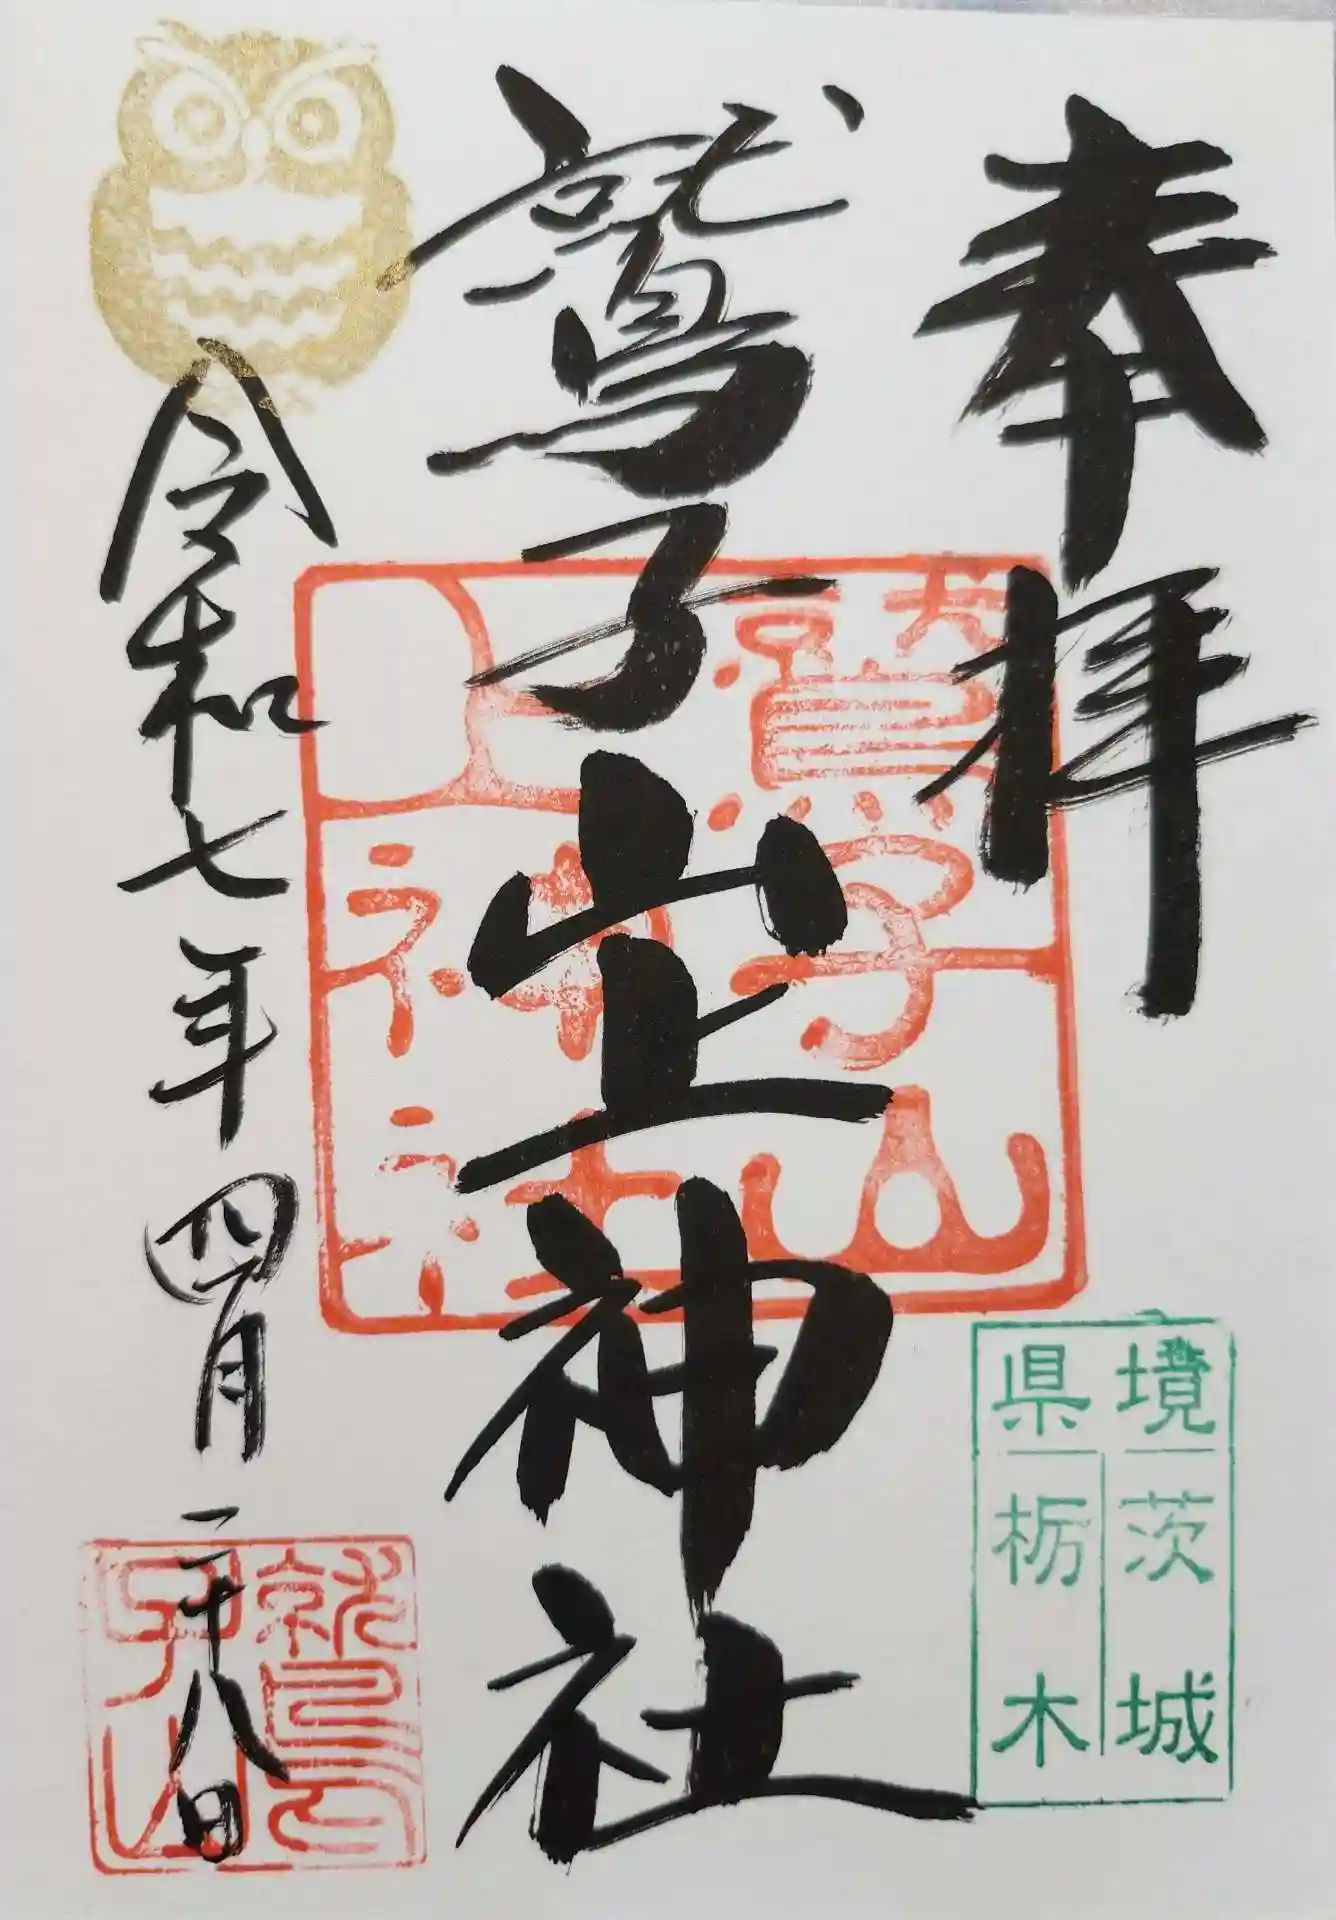 奉拝
鷲子山上神社
令和七年四月二十八日
鷲子山
上神社
境
県
茨城
栃木
鷲
子山